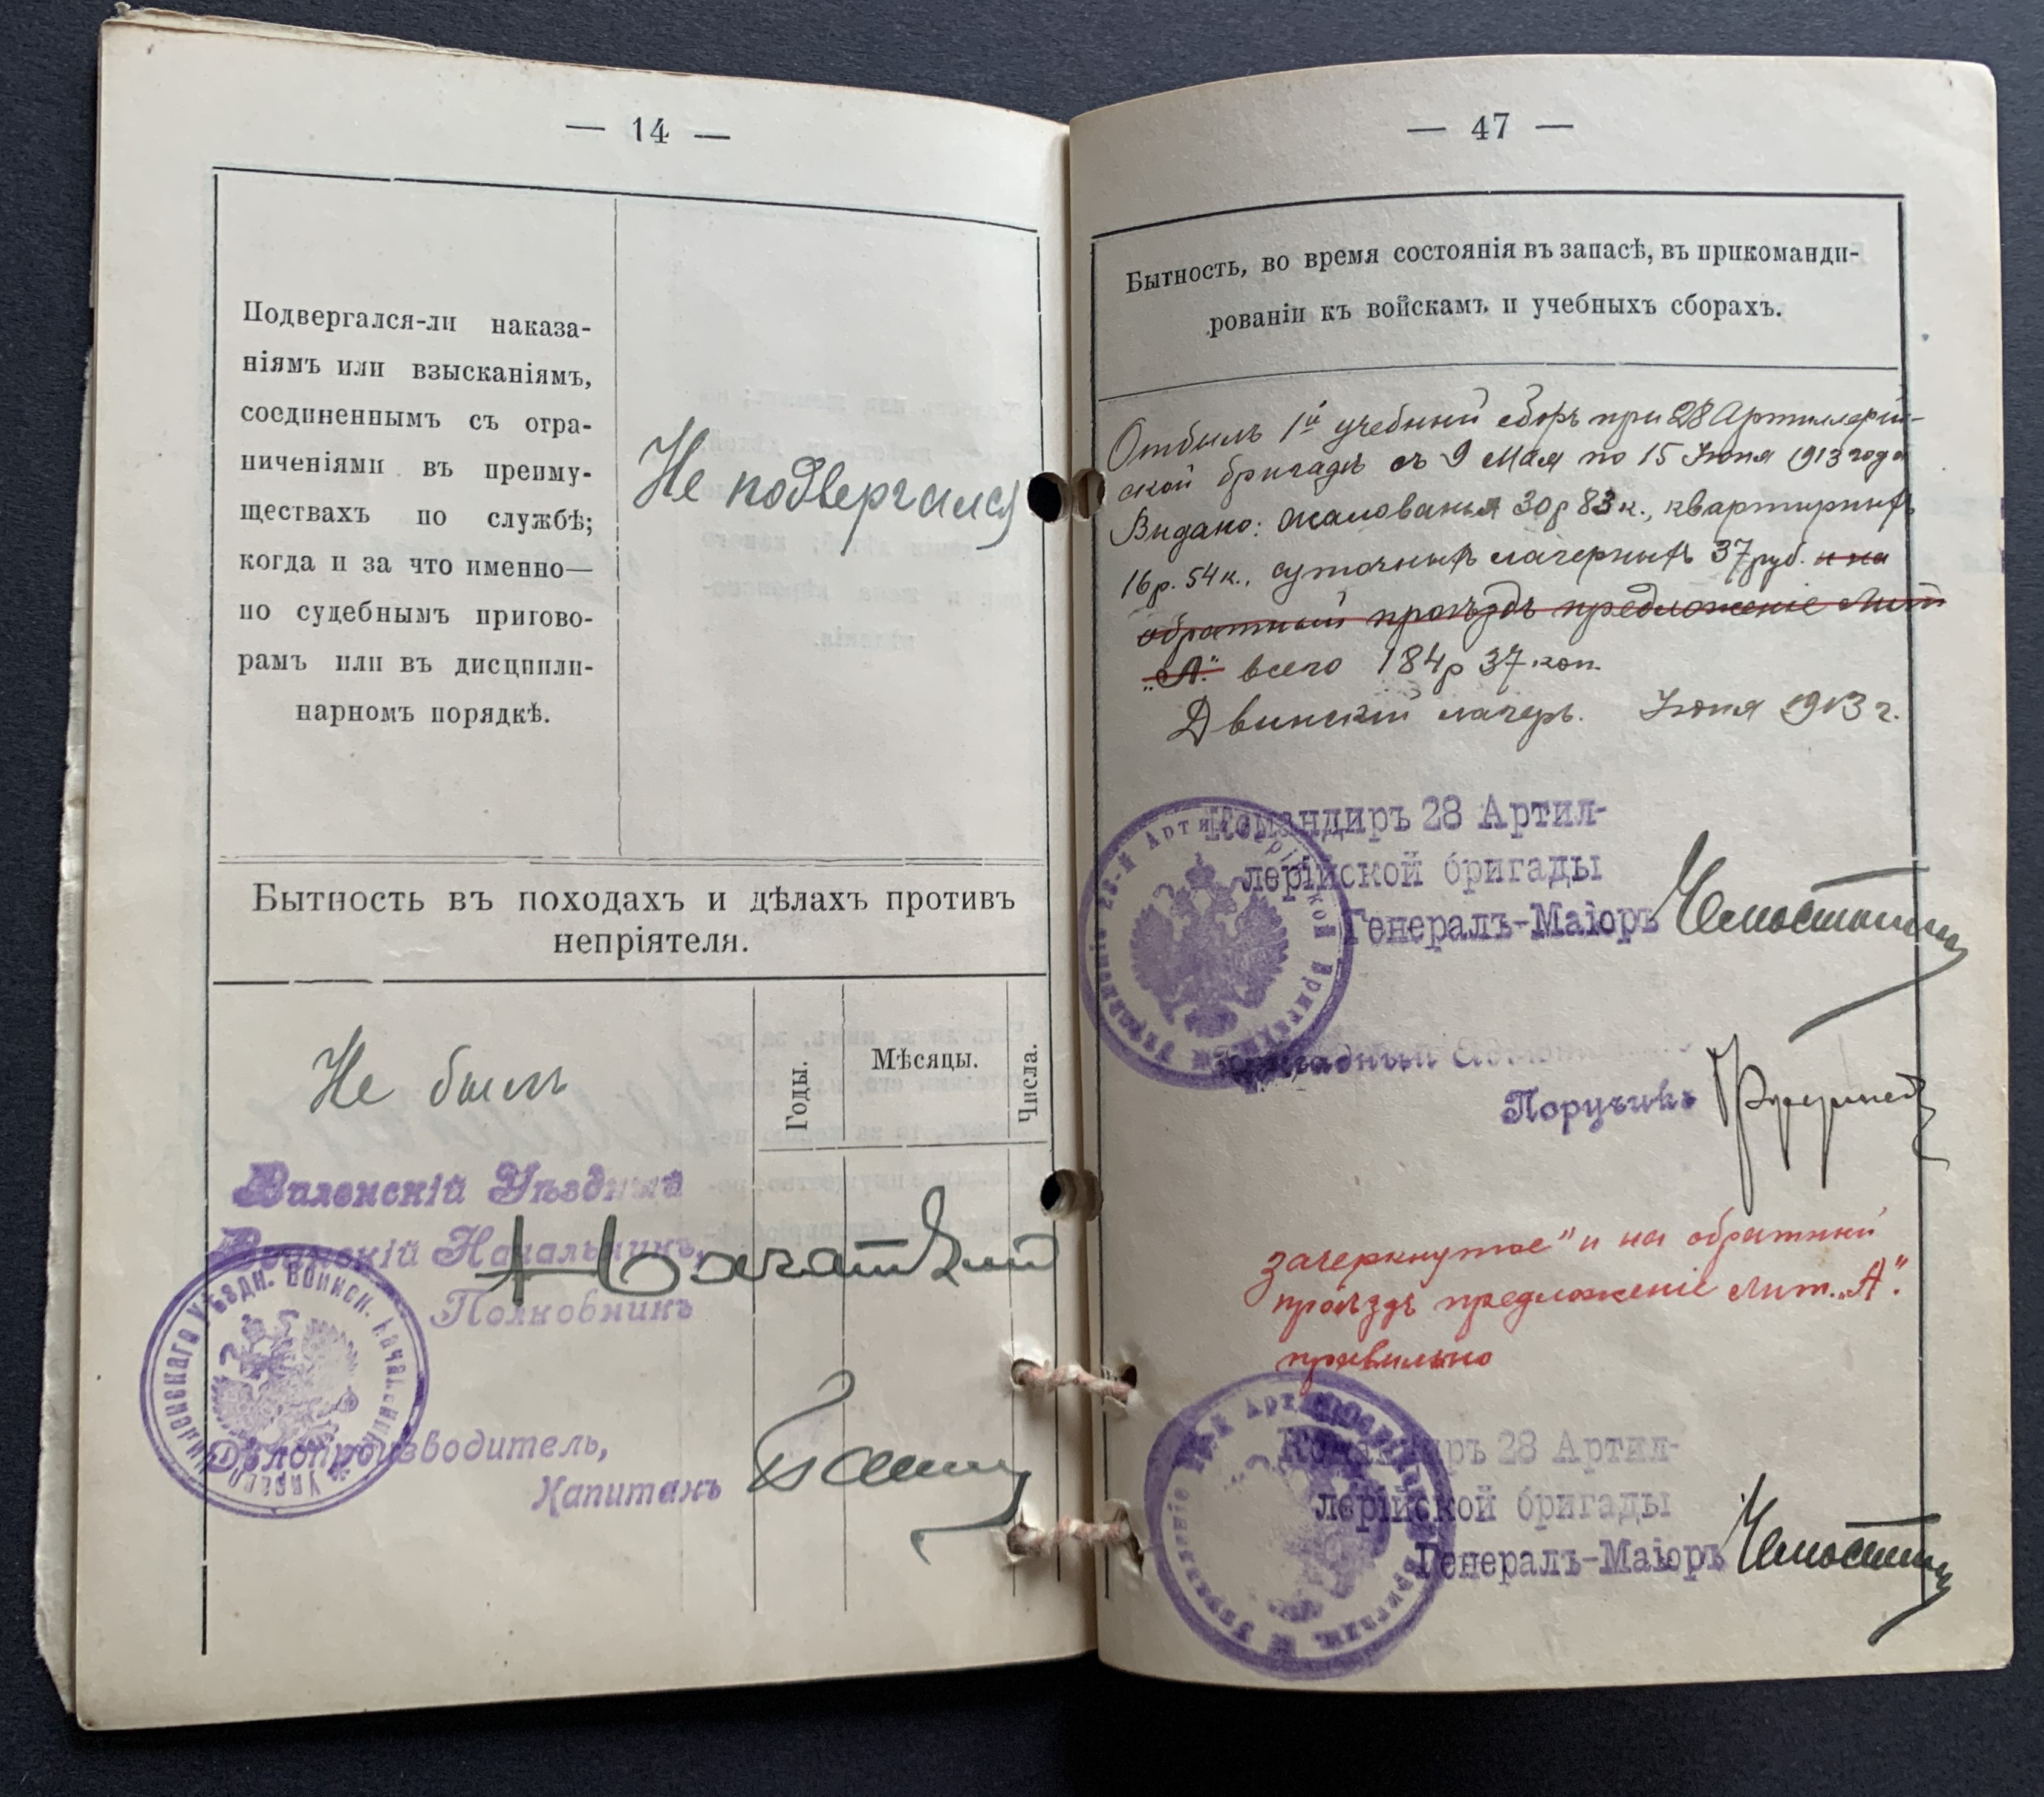 — 14 —
Подвергался-ли наказа-
ніямъ или взысканіямъ,
соединеннымъ съ огра-
ниченіями въ преиму-
ществахъ по службѣ;
когда и за что именно—
по судебнымъ пригово-
рамъ или въ дисципли-
нарномъ порядкѣ.
Не подвергался
Бытность въ походахъ и дѣлахъ противъ
непріятеля.
Годы.
Мѣсяцы.
Числа.
Не былъ
Виленскій Уѣздный
Воинскій Начальникъ,
Полковникъ
Дѣлопроизводитель,
Капитанъ
— 47 —
Бытность, во время состоянія въ запасѣ, въ прикоманди-
рованіи къ войскамъ и учебныхъ сборахъ.
Отбылъ 1й учебный сборъ при 28 Артиллерій-
ской бригадѣ съ 9 Мая по 15 Іюня 1913 года
Выдано: жалованья 30р 83 к., квартирныхъ
16 р. 54 к., суточныхъ лагерныхъ 37 руб. и на
обратный проѣздъ предложеніе Лит
„А." всего 184р 37 коп.
Двинскій лагерь. Іюня 1913 г.
Командиръ 28 Артил-
лерійской бригады
Генералъ-Маіоръ
Бригадный
Поручикъ
зачеркнутое " и на обратный
проѣздъ предложеніе Лит. „А".
правильно
Командиръ 28 Артил-
лерійской бригады
Генералъ-Маіоръ